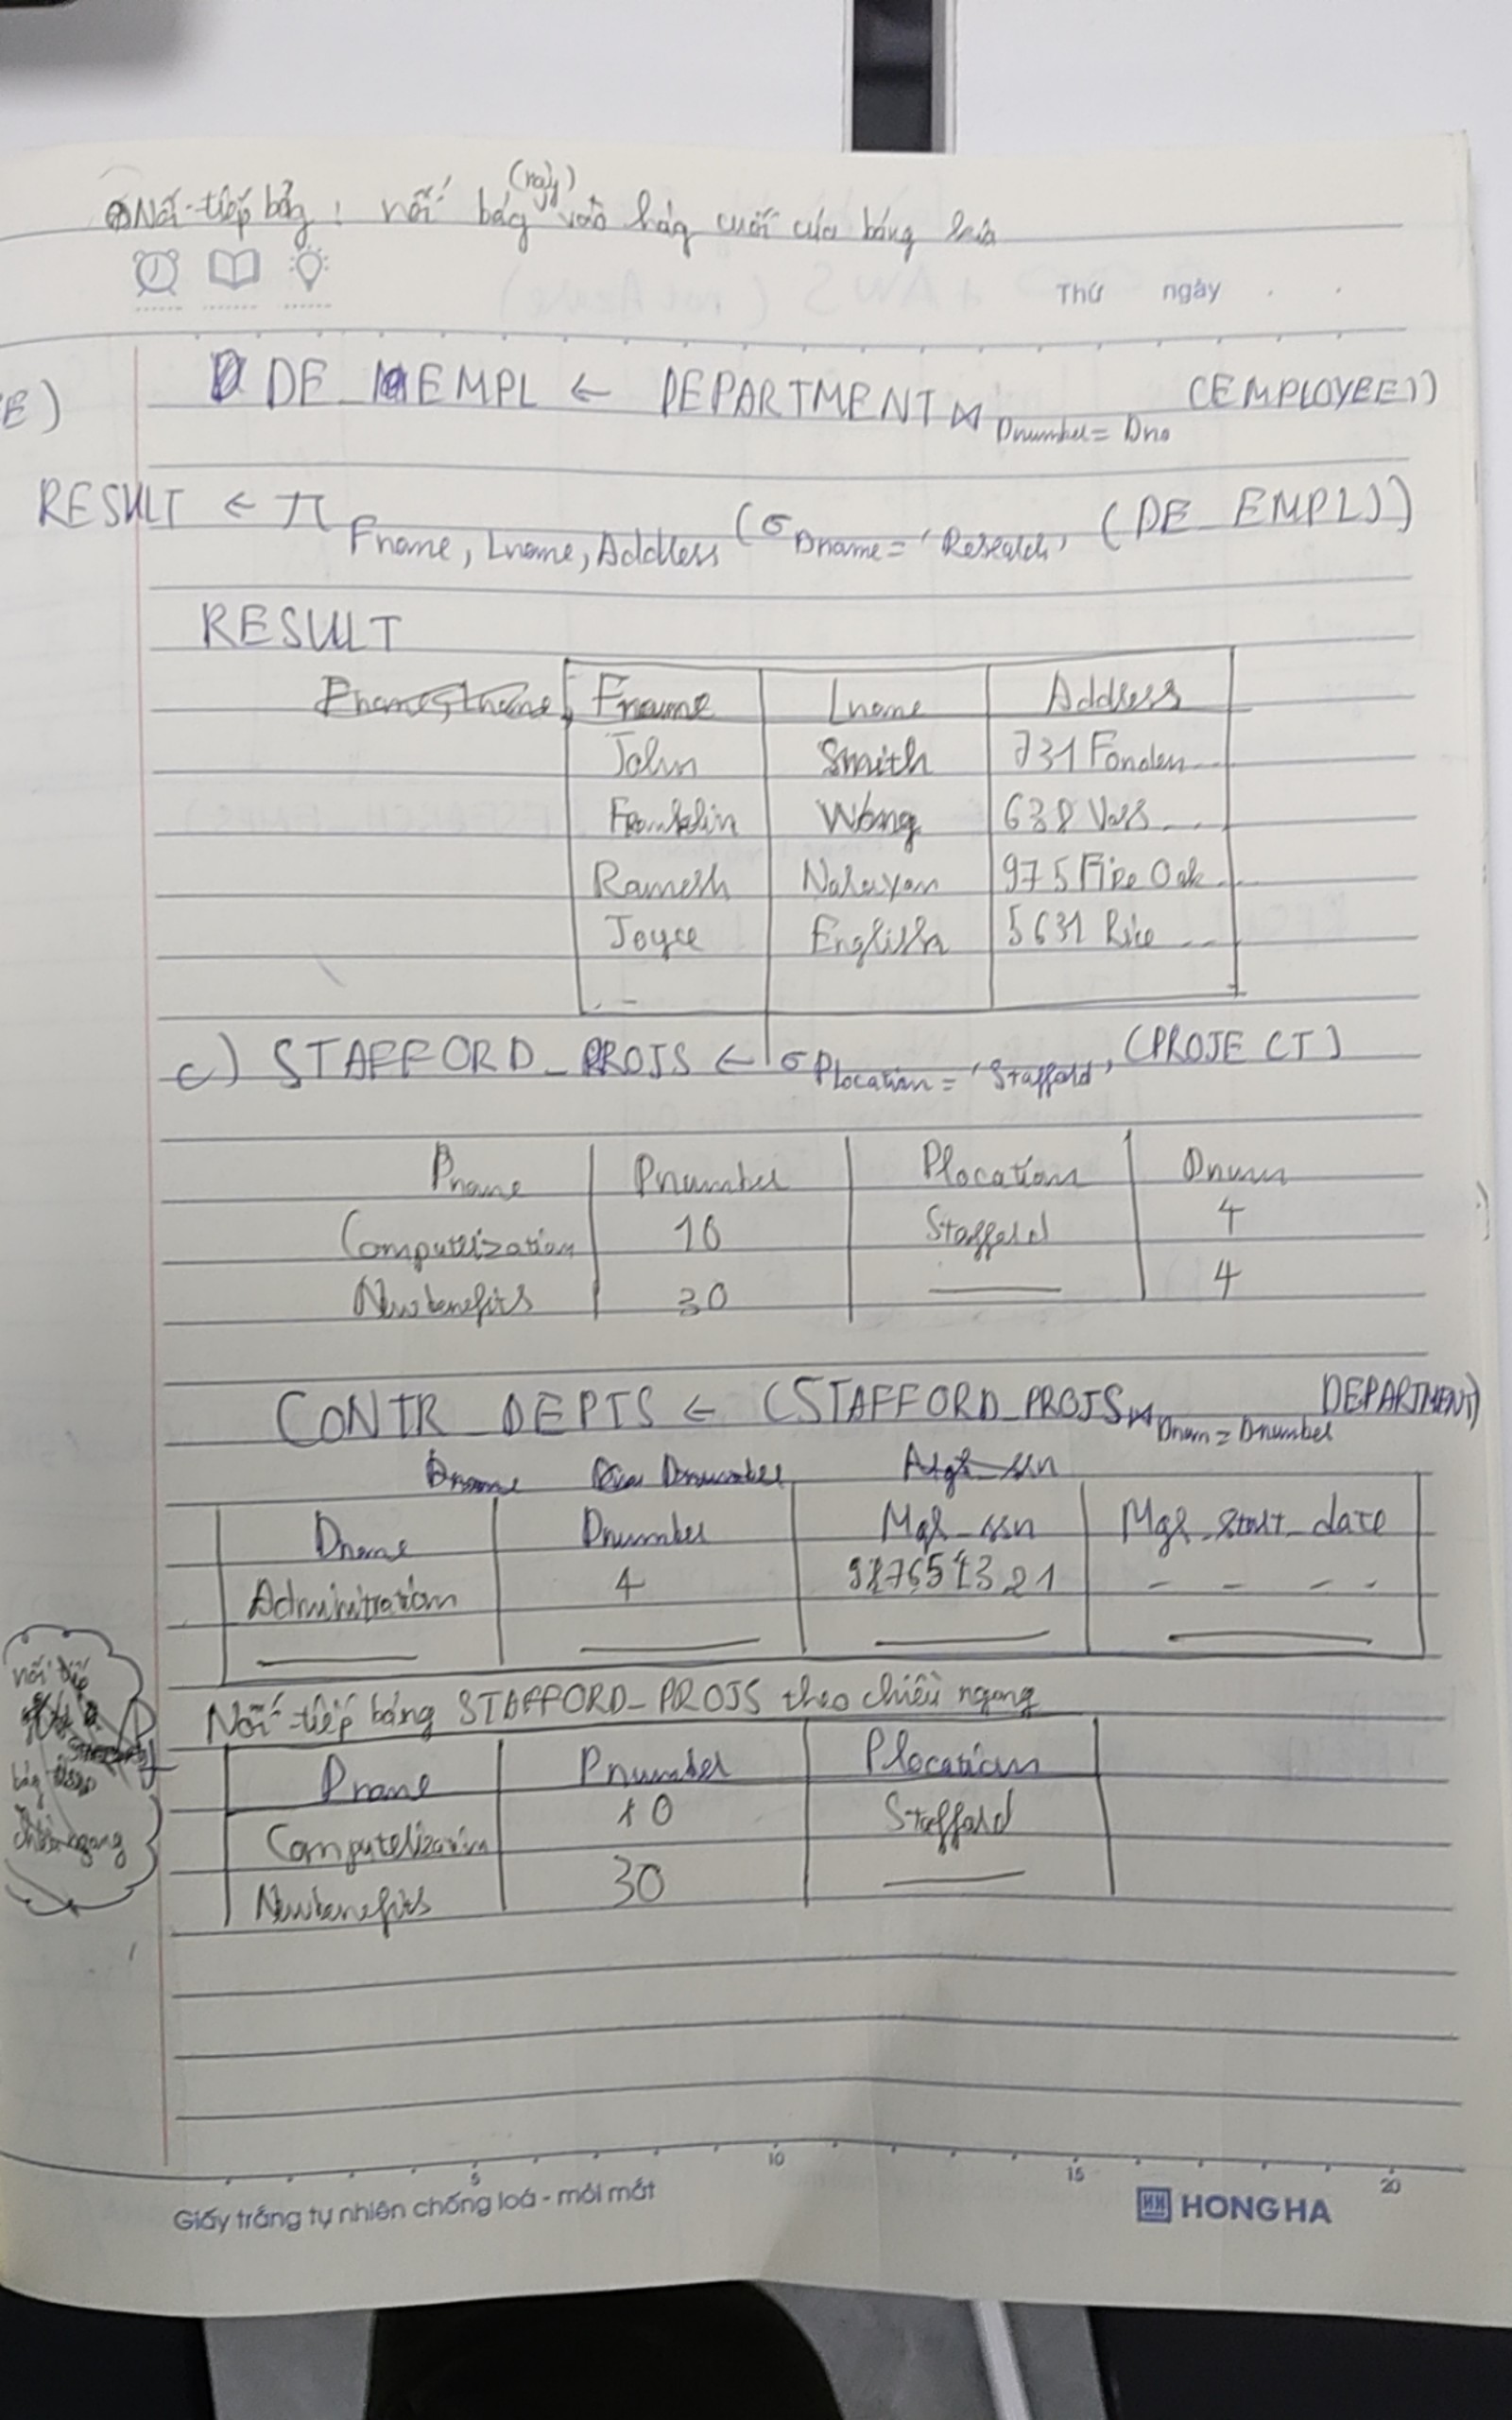 Nối tiếp bảng: nối bảng (này) vào hàng cuối của bảng kia
Thứ ngày
E)
DE_EMPL ← DEPARTMENT ⋈ Dnumber = Dno (EMPLOYEE))
RESULT ← π Fname, Lname, Address (σ Dname = 'Research' (DE_EMPL))
RESULT
Fname Lname Address
John Smith 731 Fonden...
Franklin Wong 638 Voss...
Ramesh Narayan 975 Fire Oak...
Joyce English 5631 Rice...
c) STAFFORD_PROJS ← σ Plocation = 'Stafford' (PROJECT)
Pname Pnumber Plocation Dnum
Computerization 10 Stafford 4
Newbenefits 30 — 4
CONTR_DEPTS ← (STAFFORD_PROJS ⋈ Dnum = Dnumber DEPARTMENT)
Dname Dnumber Mgr_ssn
Dname Dnumber Mgr_ssn Mgr_start_date
Administration 4 987654321 - - - -
— — — —
Nối tiếp bảng STAFFORD_PROJS theo chiều ngang
Pname Pnumber Plocation
Computerization 10 Stafford
Newbenefits 30 —
nối tiếp
bảng
chiều ngang
5 10 15 20
Giấy trắng tự nhiên chống loá - mỏi mắt
HONG HA